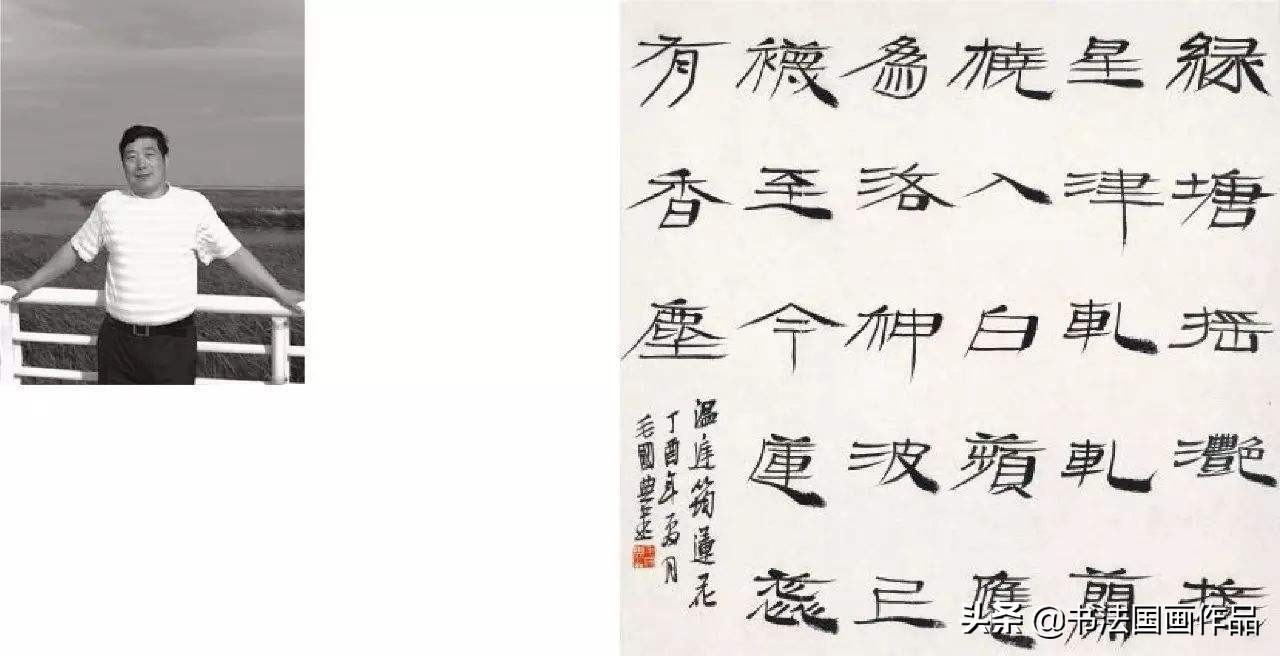 緑塘摇灧接
星津軋軋蘭
橈入白蘋應
為洛神波已
襪至今蓮蕊
有香塵
温庭筠蓮花
丁酉年月
毛國典書
头条 @书法国画作品